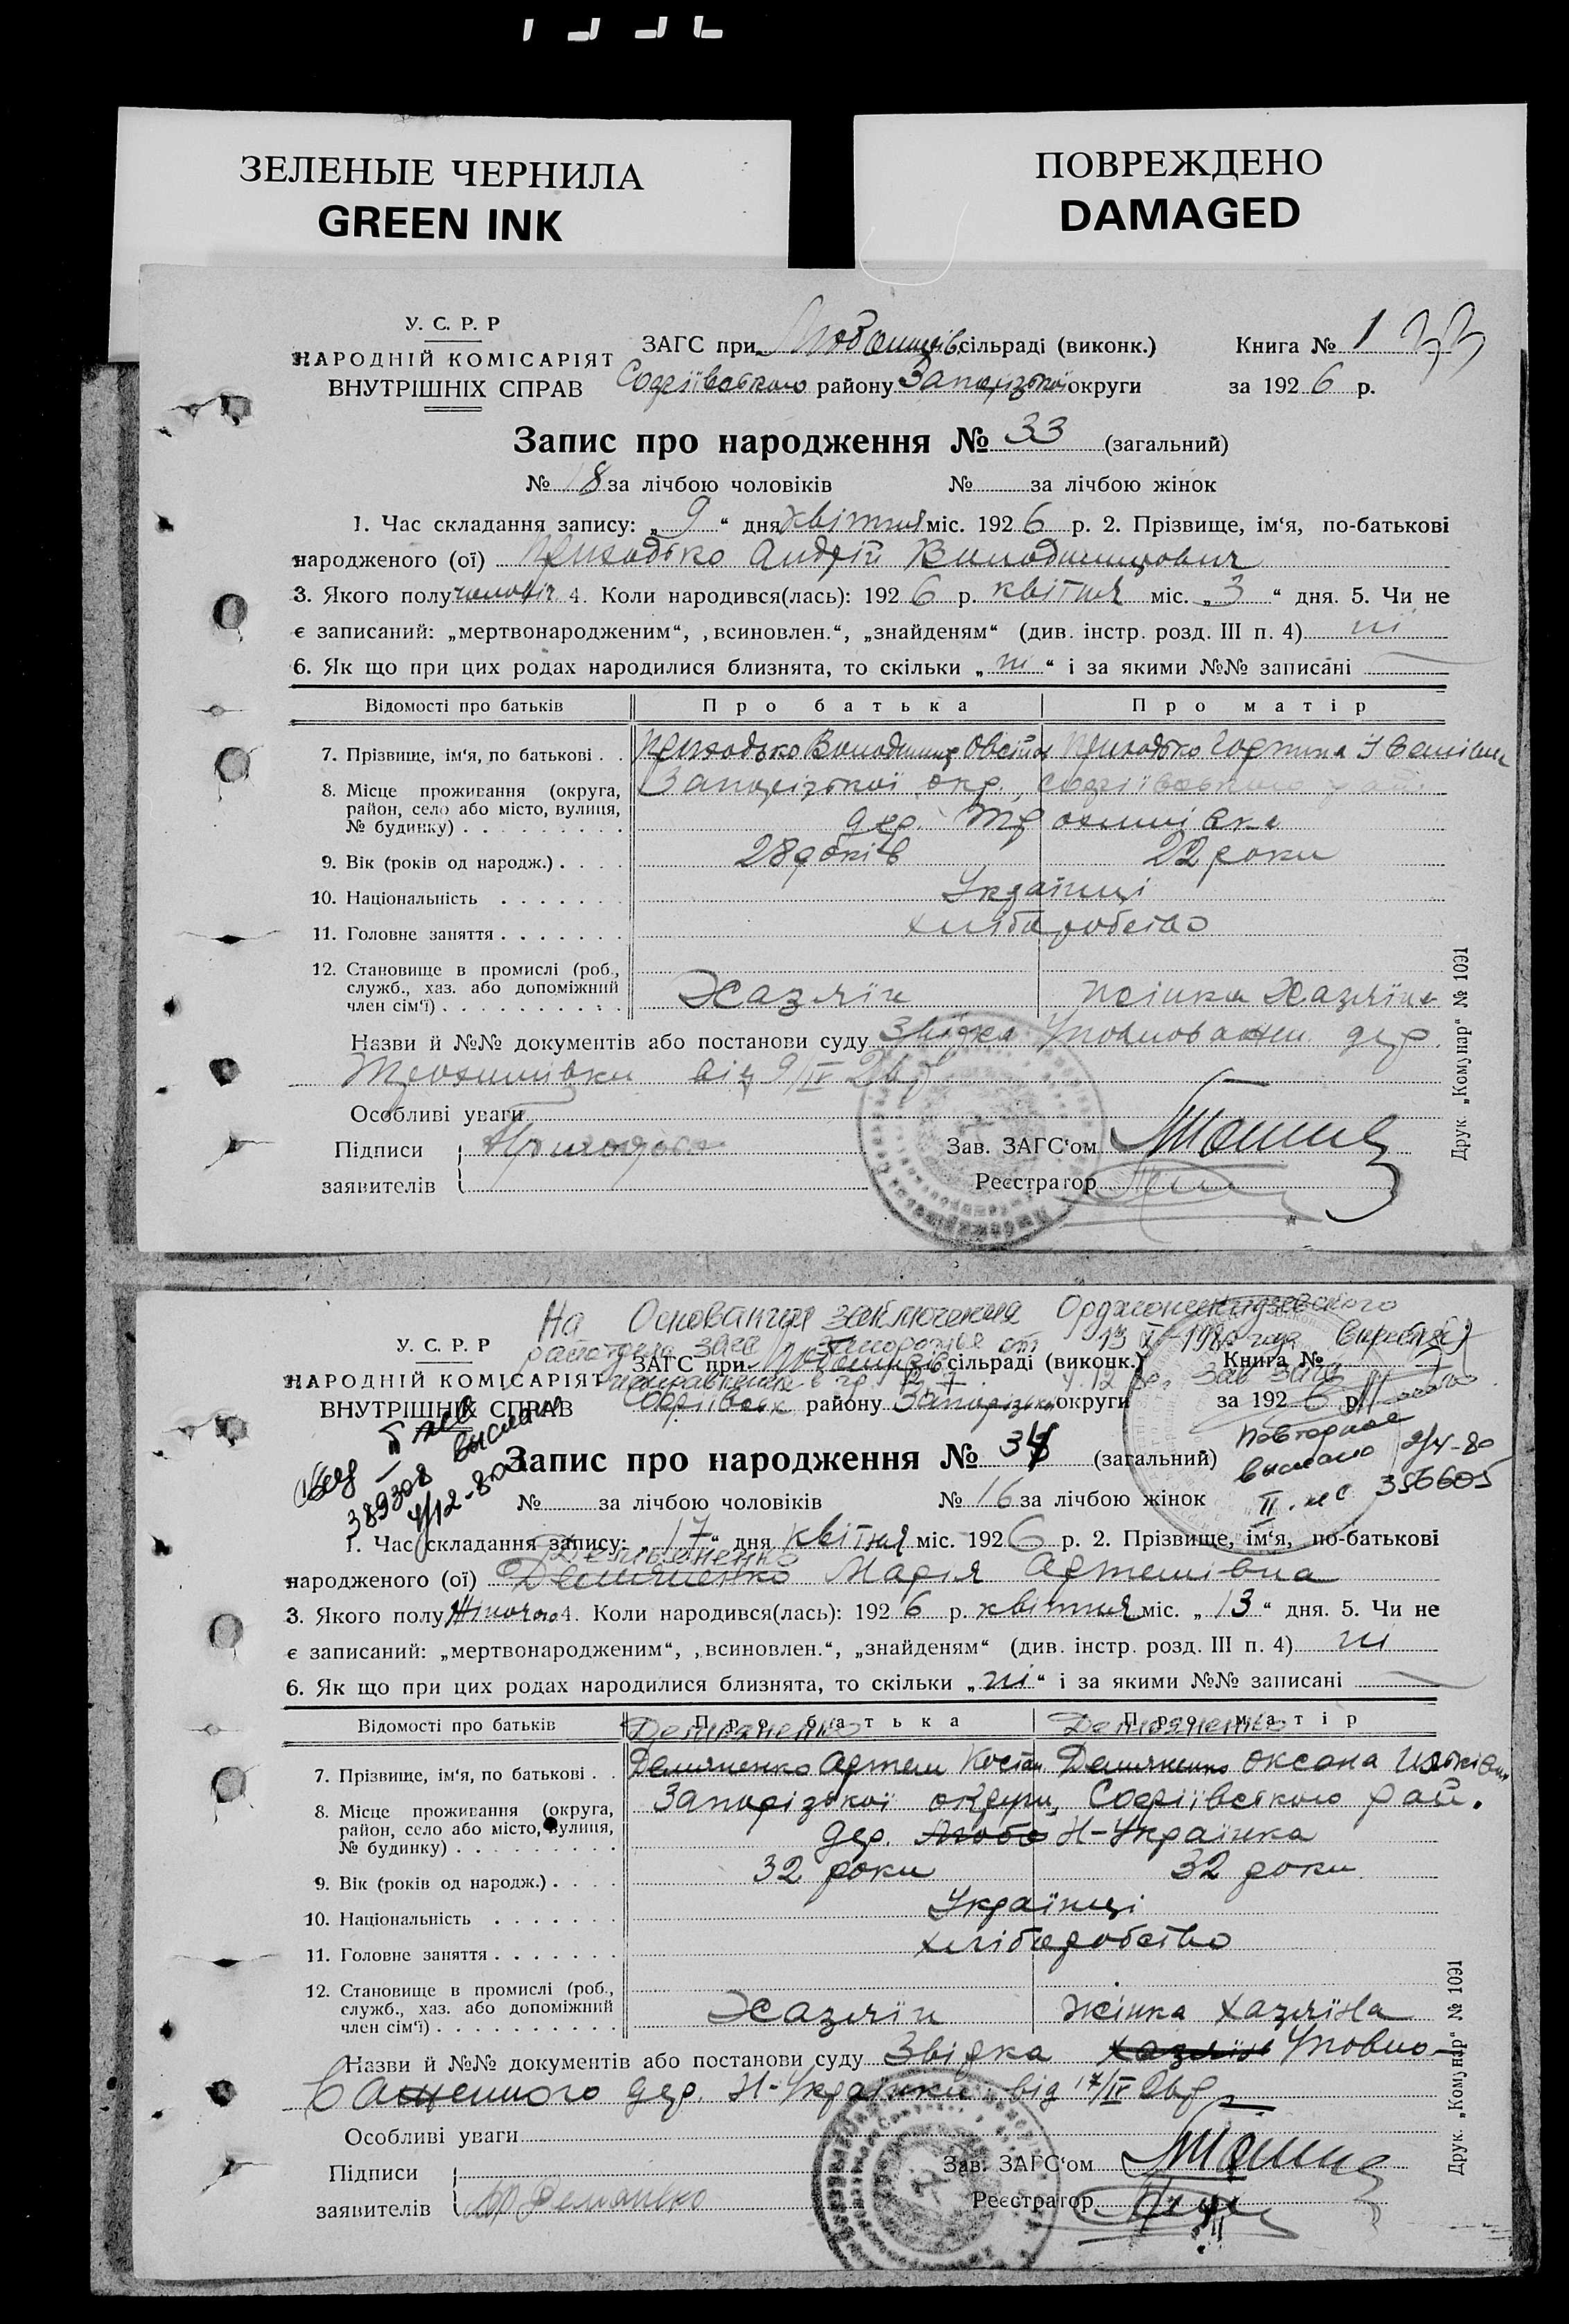 ЗЕЛЕНЫЕ ЧЕРНИЛА
GREEN INK
ПОВРЕЖДЕНО
DAMAGED
У. С. Р. Р
НАРОДНІЙ КОМІСАРІЯТ
ВНУТРІШНІХ СПРАВ
ЗАГС при сільраді (виконк.) Книга № 1 33
Софіївського району Запорізької округи за 192 6 р.
Запис про народження № 33 (загальний)
№ 18 за лічбою чоловіків № за лічбою жінок
1. Час складання запису: „ 9 “ дня квітня міс. 192 6 р. 2. Прізвище, ім‘я, по-батькові
народженого (ої) Приходько Андрій Володимирович
3. Якого полу чоловіч 4. Коли народився(лась): 192 6 р. квітня міс. „ 3 “ дня. 5. Чи не
є записаний: „мертвонародженим“, „всиновлен.“, „знайденям“ (див. інстр. розд. III п. 4) ні
6. Як що при цих родах народилися близнята, то скільки „ ні “ і за якими №№ записані
Відомості про батьків Про батька Про матір
7. Прізвище, ім‘я, по батькові . . Приходько Володимир Приходько Іванівна
8. Місце проживання (округа, Запорізької окр., Софіївського рай.
район, село або місто, вулиця,
№ будинку) . . . . . . . . . дер.
9. Вік (років од народж.) . . . . 28 років 22 роки
10. Національність . . . . . . . Українці
11. Головне заняття . . . . . . . хліборобство
12. Становище в промислі (роб.,
служб., хаз. або допоміжний
член сім‘ї) . . . . . . . . . . Хазяїн жінка Хазяїна
Назви й №№ документів або постанови суду Звідка Уповноважен. дер.
від 9/IV 26 р
Особливі уваги
Підписи Приходько Зав. ЗАГС‘ом
заявителів Реєстратор
Друк. „Комунар“ № 1091
На Основании заключения Орджоникидзевского
районного загс Запорожья от 13 1980 года
У. С. Р. Р
ЗАГС при сільраді (виконк.) Книга №
НАРОДНІЙ КОМІСАРІЯТ
исправления в гр. 2, 7 Зав загс
ВНУТРІШНІХ СПРАВ
Софіївськ району Запорізької округи за 192 6 р.
выслано
389308
4/12-80
Повторное
выслано 2/4-80
II 356605
Запис про народження № 34 (загальний)
№ за лічбою чоловіків № 16 за лічбою жінок
1. Час складання запису: „ 17 “ дня квітня міс. 192 6 р. 2. Прізвище, ім‘я, по-батькові
Демьяненко
народженого (ої) Демяненко Марія Артемівна
3. Якого полу Жіночого 4. Коли народився(лась): 192 6 р. квітня міс. „ 13 “ дня. 5. Чи не
є записаний: „мертвонародженим“, „всиновлен.“, „знайденям“ (див. інстр. розд. III п. 4) ні
6. Як що при цих родах народилися близнята, то скільки „ ні “ і за якими №№ записані
Відомості про батьків Про батька Про матір
Демьяненко Демьяненко
7. Прізвище, ім‘я, по батькові . . Демяненко Артем Костян Демяненко Оксана
8. Місце проживання (округа, Запорізької округи, Софіївського рай.
район, село або місто, вулиця,
№ будинку) . . . . . . . . . дер. Любо Н-Українка
9. Вік (років од народж.) . . . . 32 роки 32 роки
10. Національність . . . . . . . Українці
11. Головне заняття . . . . . . . хліборобство
12. Становище в промислі (роб.,
служб., хаз. або допоміжний
член сім‘ї) . . . . . . . . . . Хазяїн жінка хазяїна
Назви й №№ документів або постанови суду Звідка хазяїн Уповно-
важенного дер. Н-Українки від 17/IV 26 р
Особливі уваги
Підписи Зав. ЗАГС‘ом
заявителів Реєстратор
Друк. „Комунар“ № 1091